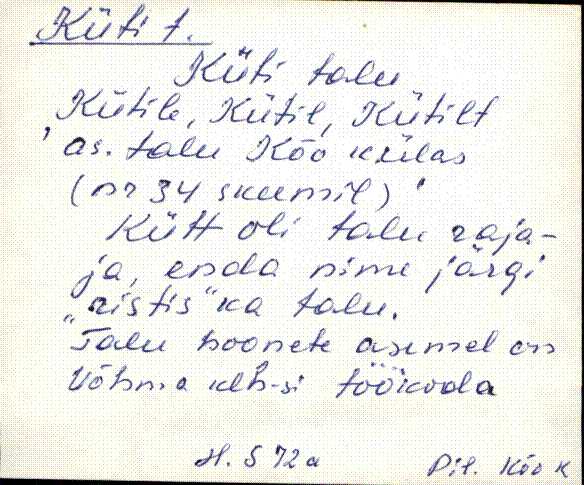 Küti t.
Küti talu
Kütile, Kütil, Kütilt
'as. talu Kõo külas
(nr 34 skeemil)'
Kütt oli talu raja-
ja, enda nime järgi
"ristis" ka talu.
Talu hoonete asemel on
Võhma klh-si töökoda
H. S 72a
Pil. Kõo k